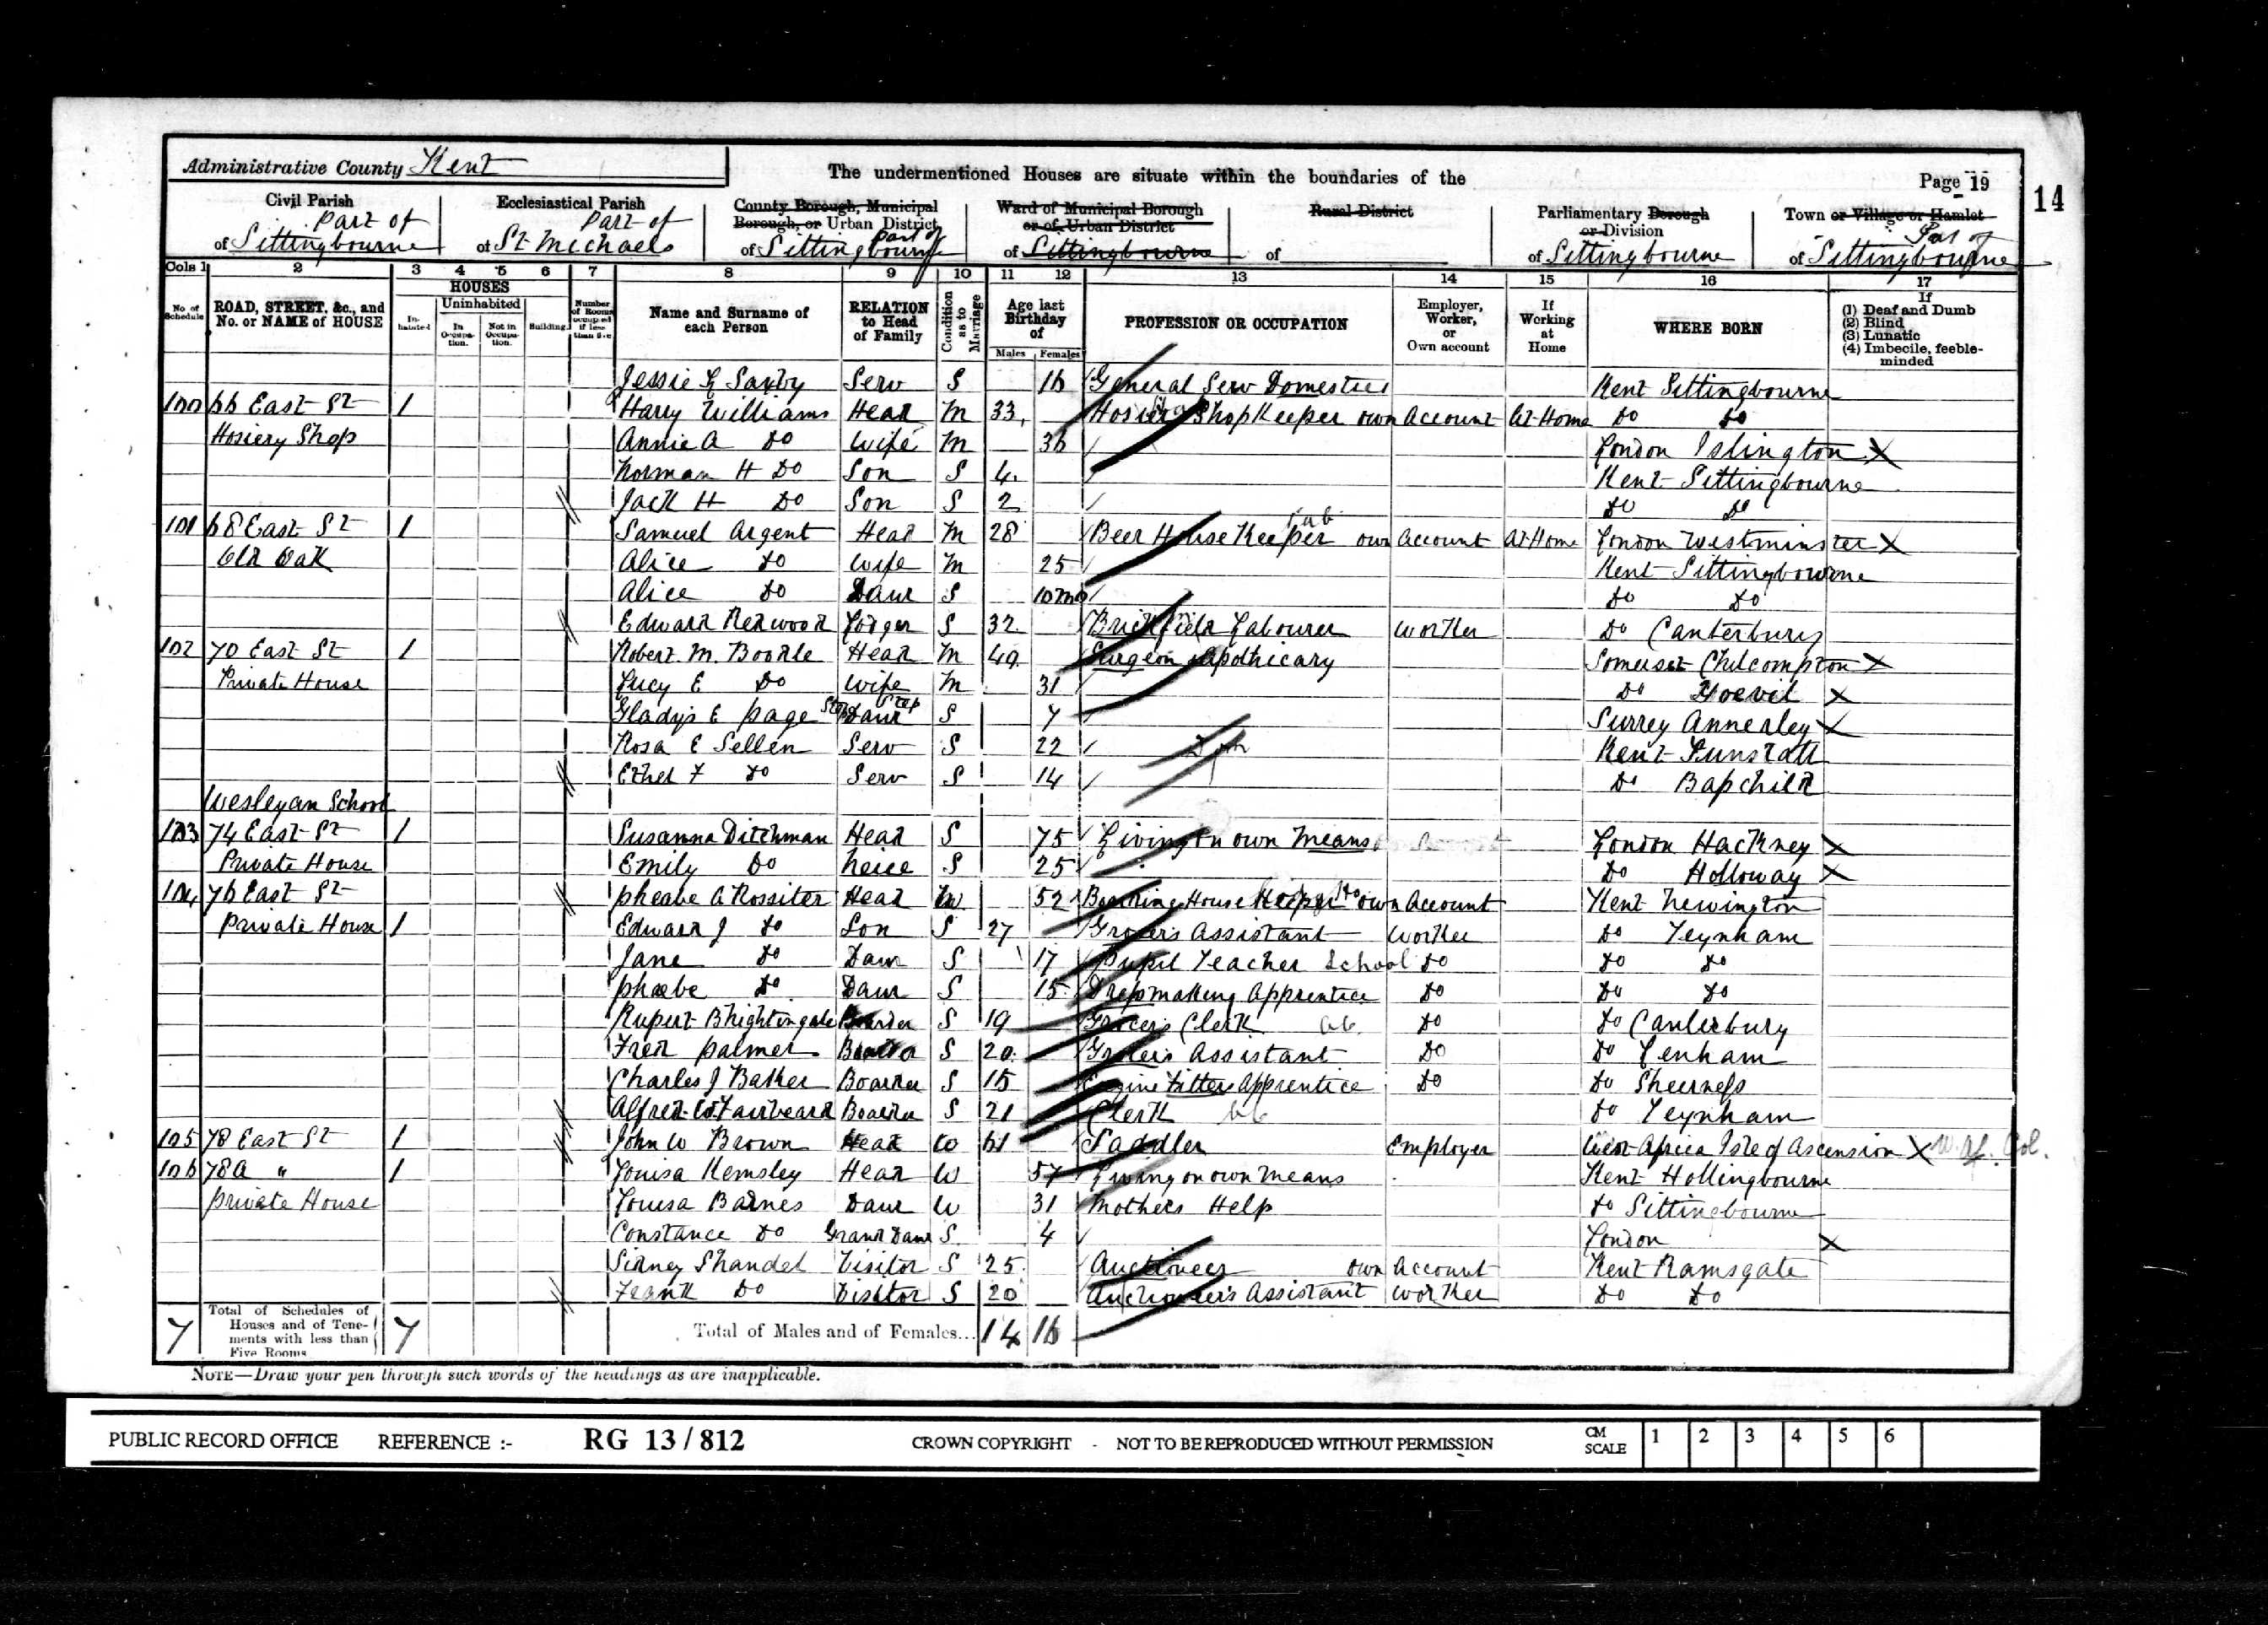 Administrative County Kent
The undermentioned Houses are situate within the boundaries of the
Page 19
14
Civil Parish
part of
of Sittingbourne
Ecclesiastical Parish
part of
of St Michaels
County Borough, Municipal
Borough, or Urban District
part of
of Sittingbourne
Ward of Municipal Borough
or of Urban District
of Sittingbourne
Rural District
of
Parliamentary Borough
or Division
of Sittingbourne
Town or Village or Hamlet
Part of
of Sittingbourne
Cols 1 2 3 4 5 6 7 8 9 10 11 12 13 14 15 16 17
No. of Schedule
ROAD, STREET, &c., and No. or NAME of HOUSE
HOUSES
Inhabited
Uninhabited
In Occupation.
Not in Occupation.
Building.
Number of Rooms occupied if less than five
Name and Surname of each Person
RELATION to Head of Family
Condition as to Marriage
Age last Birthday of
Males Females
PROFESSION OR OCCUPATION
Employer, Worker, or Own account
If Working at Home
WHERE BORN
If
(1) Deaf and Dumb
(2) Blind
(3) Lunatic
(4) Imbecile, feeble-minded
Jessie L Saxby Serv S 16 General Serv Domestic Kent Sittingbourne
100 66 East St 1 Harry Williams Head M 33 Hosier Shop Keeper own Account At Home Do Do
Hosiery Shop Annie A Do Wife M 36 London Islington X
Norman H Do Son S 4 Kent Sittingbourne
Jack H Do Son S 2 Do Do
101 68 East St 1 Samuel Argent Head M 28 Beer House Keeper own Account At Home London Westminster X
Old Oak Alice Do Wife M 25 Kent Sittingbourne
Alice Do Daur S 10 mo Do Do
Edward Redwood Lodger S 32 Brickfield Labourer Worker Do Canterbury
102 70 East St 1 Robert M. Boodle Head M 49 Surgeon Apothicary Somerset Chilcompton X
Private House Lucy E Do Wife M 31 Do Yoevil X
Gladys E Page Step Daur S 7 Surrey Annerley X
Rosa E Sellen Serv S 22 Dom Kent Tunstall
Ethel F Do Serv S 14 Do Bapchild
Wesleyan School
103 74 East St 1 Susanna Ditchman Head S 75 Living on own Means London Hackney X
Private House Emily Do Neice S 25 Do Holloway X
104 76 East St Pheabe A Rossiter Head W 52 Boarding House Keeper own Account Kent Newington
Private House 1 Edward J Do Son S 27 Grocer's Assistant Worker Do Teynham
Jane Do Daur S 17 Pupil Teacher School Do Do Do
Phœbe Do Daur S 15 Dressmaking Apprentice Do Do Do
Rupert B Nightingale Boarder S 19 Grocer's Clerk Do Do Canterbury
Fred Palmer Boarder S 20 Grocer's Assistant Do Do Lenham
Charles J Baker Boarder S 15 Engine Fitters Apprentice Do Do Sheerness
Alfred W. Fairbeard Boarder S 21 Clerk Do Teynham
105 78 East St 1 John W Brown Head W 61 Saddler Employer West Africa Isle of Ascension X W. Af. Col.
106 78a " 1 Louisa Hemsley Head W 57 Living on own means Kent Hollingbourne
Private House Louisa Barnes Daur W 31 Mothers Help Do Sittingbourne
Constance Do Grand Daur S 4 London X
Sidney Shandel Visitor S 25 Auctioneer own Account Kent Ramsgate
Frank Do Visitor S 20 Auctioneer's Assistant Worker Do Do
7 Total of Schedules of Houses and of Tenements with less than Five Rooms 7 Total of Males and of Females... 14 16
NOTE—Draw your pen through such words of the headings as are inapplicable.
PUBLIC RECORD OFFICE REFERENCE :- RG 13 / 812 CROWN COPYRIGHT - NOT TO BE REPRODUCED WITHOUT PERMISSION CM SCALE 1 2 3 4 5 6